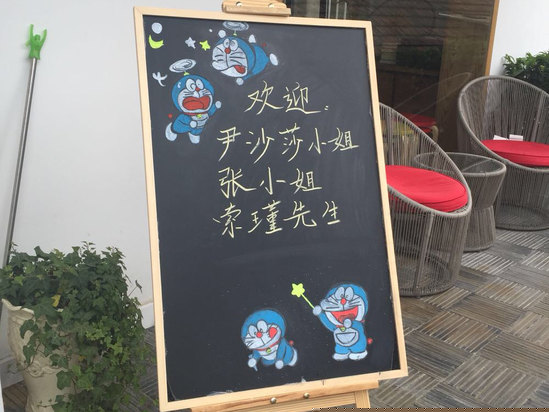 欢迎
尹沙莎小姐
张小姐
索瑾先生